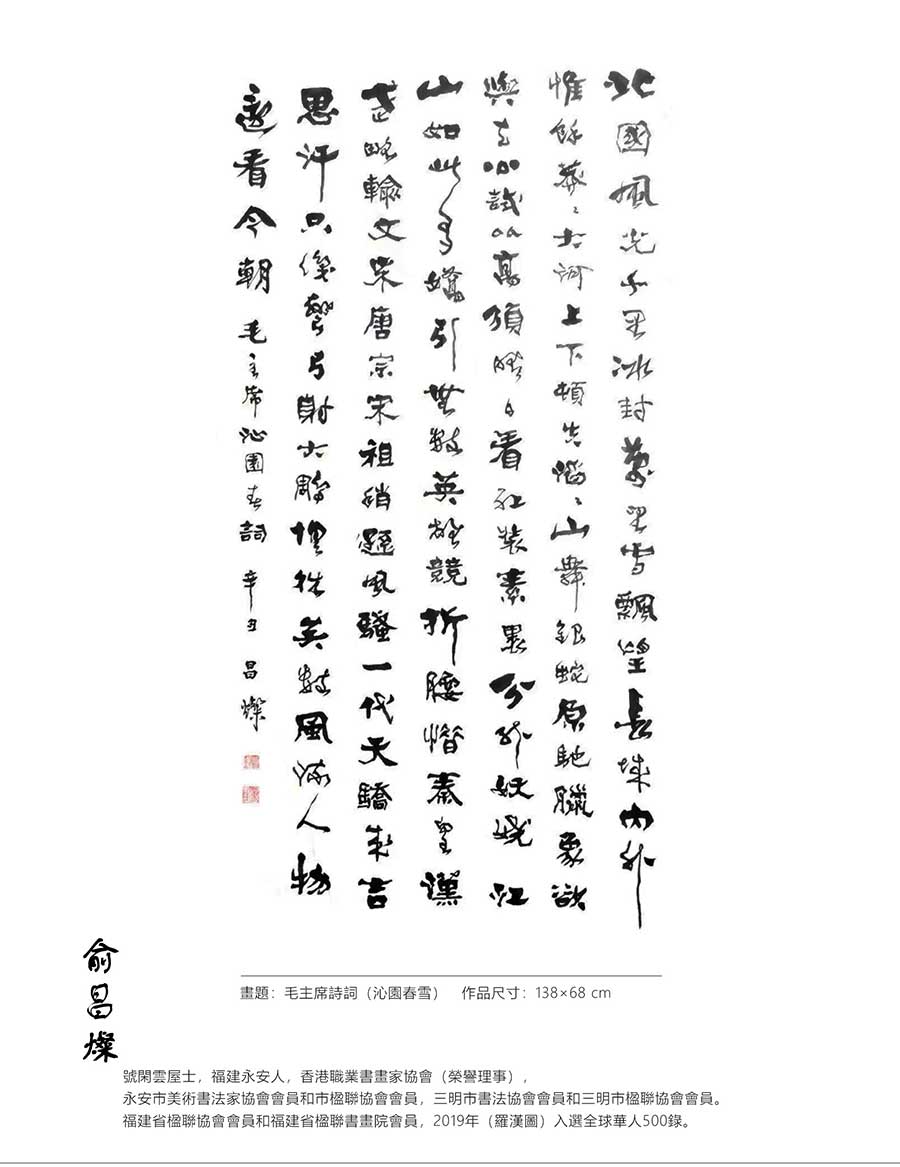 北國風光千里冰封萬里雪飄望長城內外
惟餘莽〻大河上下頓失滔〻山舞銀蛇原馳臘象欲
與天公試比高須晴日看紅裝素裹分外妖嬈江
山如此多嬌引無數英雄競折腰惜秦皇漢
武略輸文采唐宗宋祖稍遜風騷一代天驕成吉
思汗只識彎弓射大雕俱往矣數風流人物
還看今朝 毛主席沁園春詞 辛丑 昌燦
畫題：毛主席詩詞（沁園春雪） 作品尺寸：138×68 cm
俞昌燦
號閑雲屋士，福建永安人，香港職業書畫家協會（榮譽理事），
永安市美術書法家協會會員和市楹聯協會會員，三明市書法協會會員和三明市楹聯協會會員。
福建省楹聯協會會員和福建省楹聯書畫院會員，2019年（羅漢圖）入選全球華人500錄。